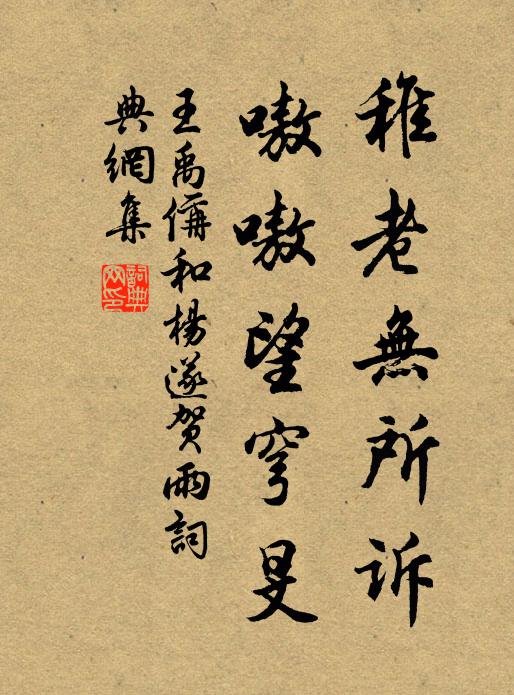 稚老無所诉
嗷嗷望穹旻
王禹偁和楊遂贺雨詞
典網集
詞典網印